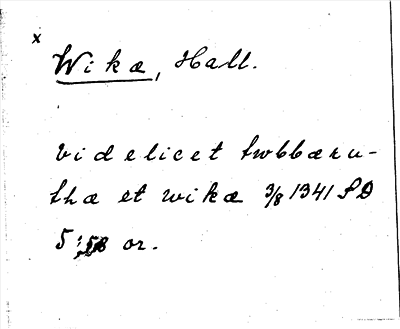 x
Wikæ, Hall.
videlicet twbbæru-
thæ et wikæ 3/8 1341 SD
5: or.